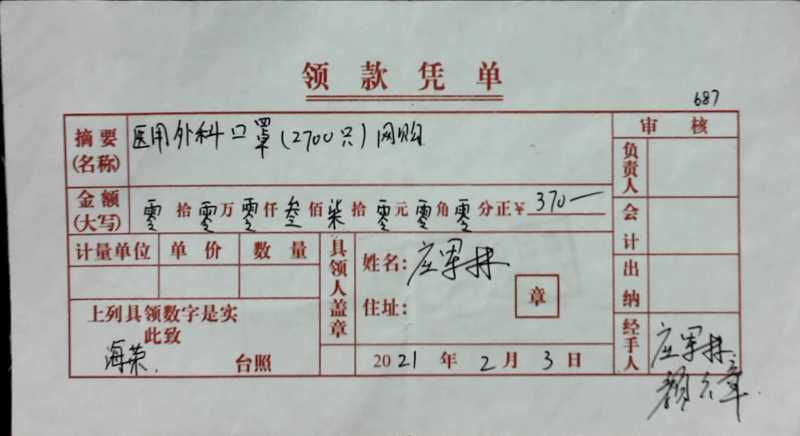 领款凭单
687
摘要(名称) 医用外科口罩(2700只)网购
审核
金额(大写) 零拾零万零仟叁佰柒拾零元零角零分正¥370一
负责人
会计
出纳
经手人 庄军林
计量单位 单价 数量
具领人盖章
姓名:庄军林
住址:
章
上列具领数字是实
此致
海荣 台照
2021年2月3日